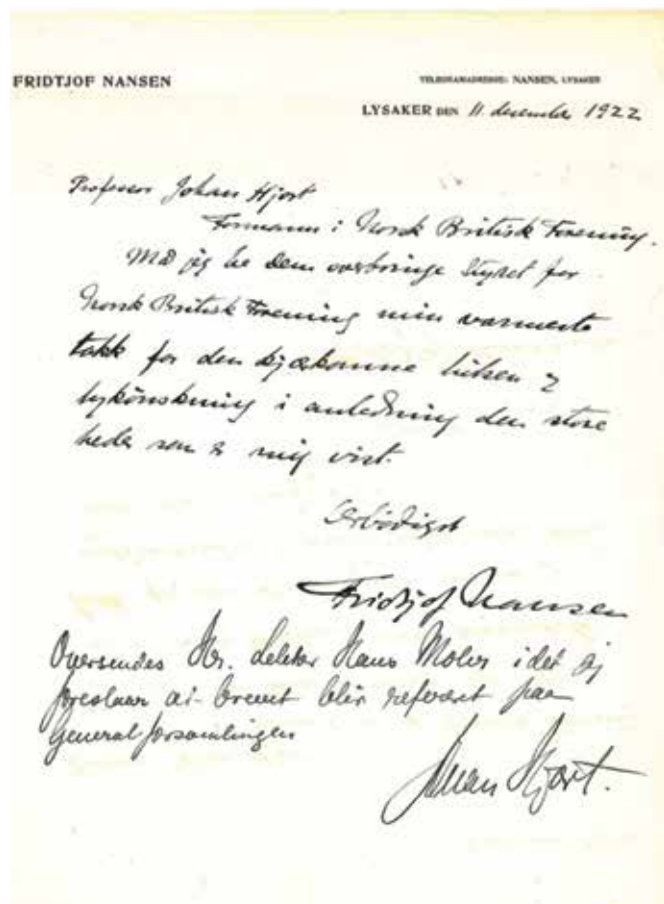 FRIDTJOF NANSEN
TELEGRAMADRESSE: NANSEN, LYSAKER
LYSAKER DEN 11. desember 1922
Professor Johan Hjort
Formann i Norsk Britisk Forening.
Må jeg be dem overbringe styret for
Norsk Britisk Forening min varmeste
takk for den kjækomne hilsen og
lykönskning i anledning den store
heder som er mig vist.
Ærbödigst
Fridtjof Nansen
Oversendes Hr. Lektor Hans idet jeg
foreslaar at brevet blir referert paa
Generalforsamlingen
Johan Hjort.